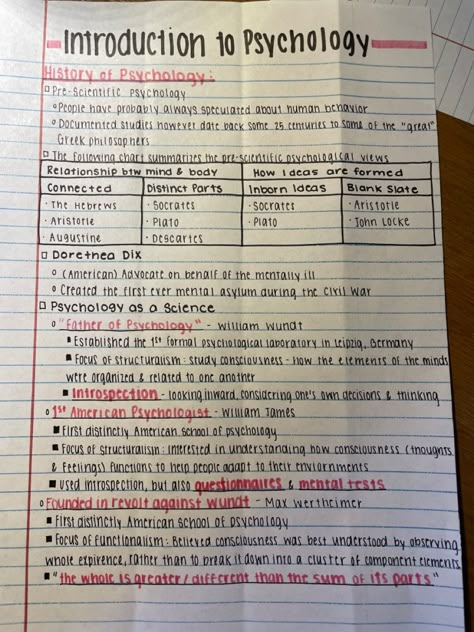 Introduction to Psychology
History of Psychology:
Pre-Scientific Psychology
People have probably always speculated about human behavior
Documented studies however date back some 25 centuries to some of the "great"
Greek philosophers
The following chart summarizes the pre-scientific psychological views
Relationship btw mind & body | How ideas are formed
Connected | Distinct Parts | Inborn Ideas | Blank Slate
· The Hebrews | · Socrates | · Socrates | · Aristotle
· Aristotle | · Plato | · Plato | · John Locke
· Augustine | · Descartes
Dorethea Dix
(American) Advocate on behalf of the mentally ill
Created the first ever mental asylum during the Civil War
Psychology as a Science
"Father of Psychology" - William Wundt
Established the 1st formal psychological laboratory in Leipzig, Germany
Focus of structuralism: study consciousness - how the elements of the minds
were organized & related to one another
Introspection - looking inward, considering one's own decisions & thinking
1st American Psychologist - William James
First distinctly American school of psychology
Focus of structuralism: interested in understanding how consciousness (thoughts
& feelings) functions to help people adapt to their enviornments
Used introspection, but also questionnaires & mental tests
Founded in revolt against Wundt - Max Wertheimer
First distinctly American school of psychology
Focus of functionalism: Believed consciousness was best understood by observing
whole expirence, rather than to break it down into a cluster of component elements
"the whole is greater/different than the sum of its parts"